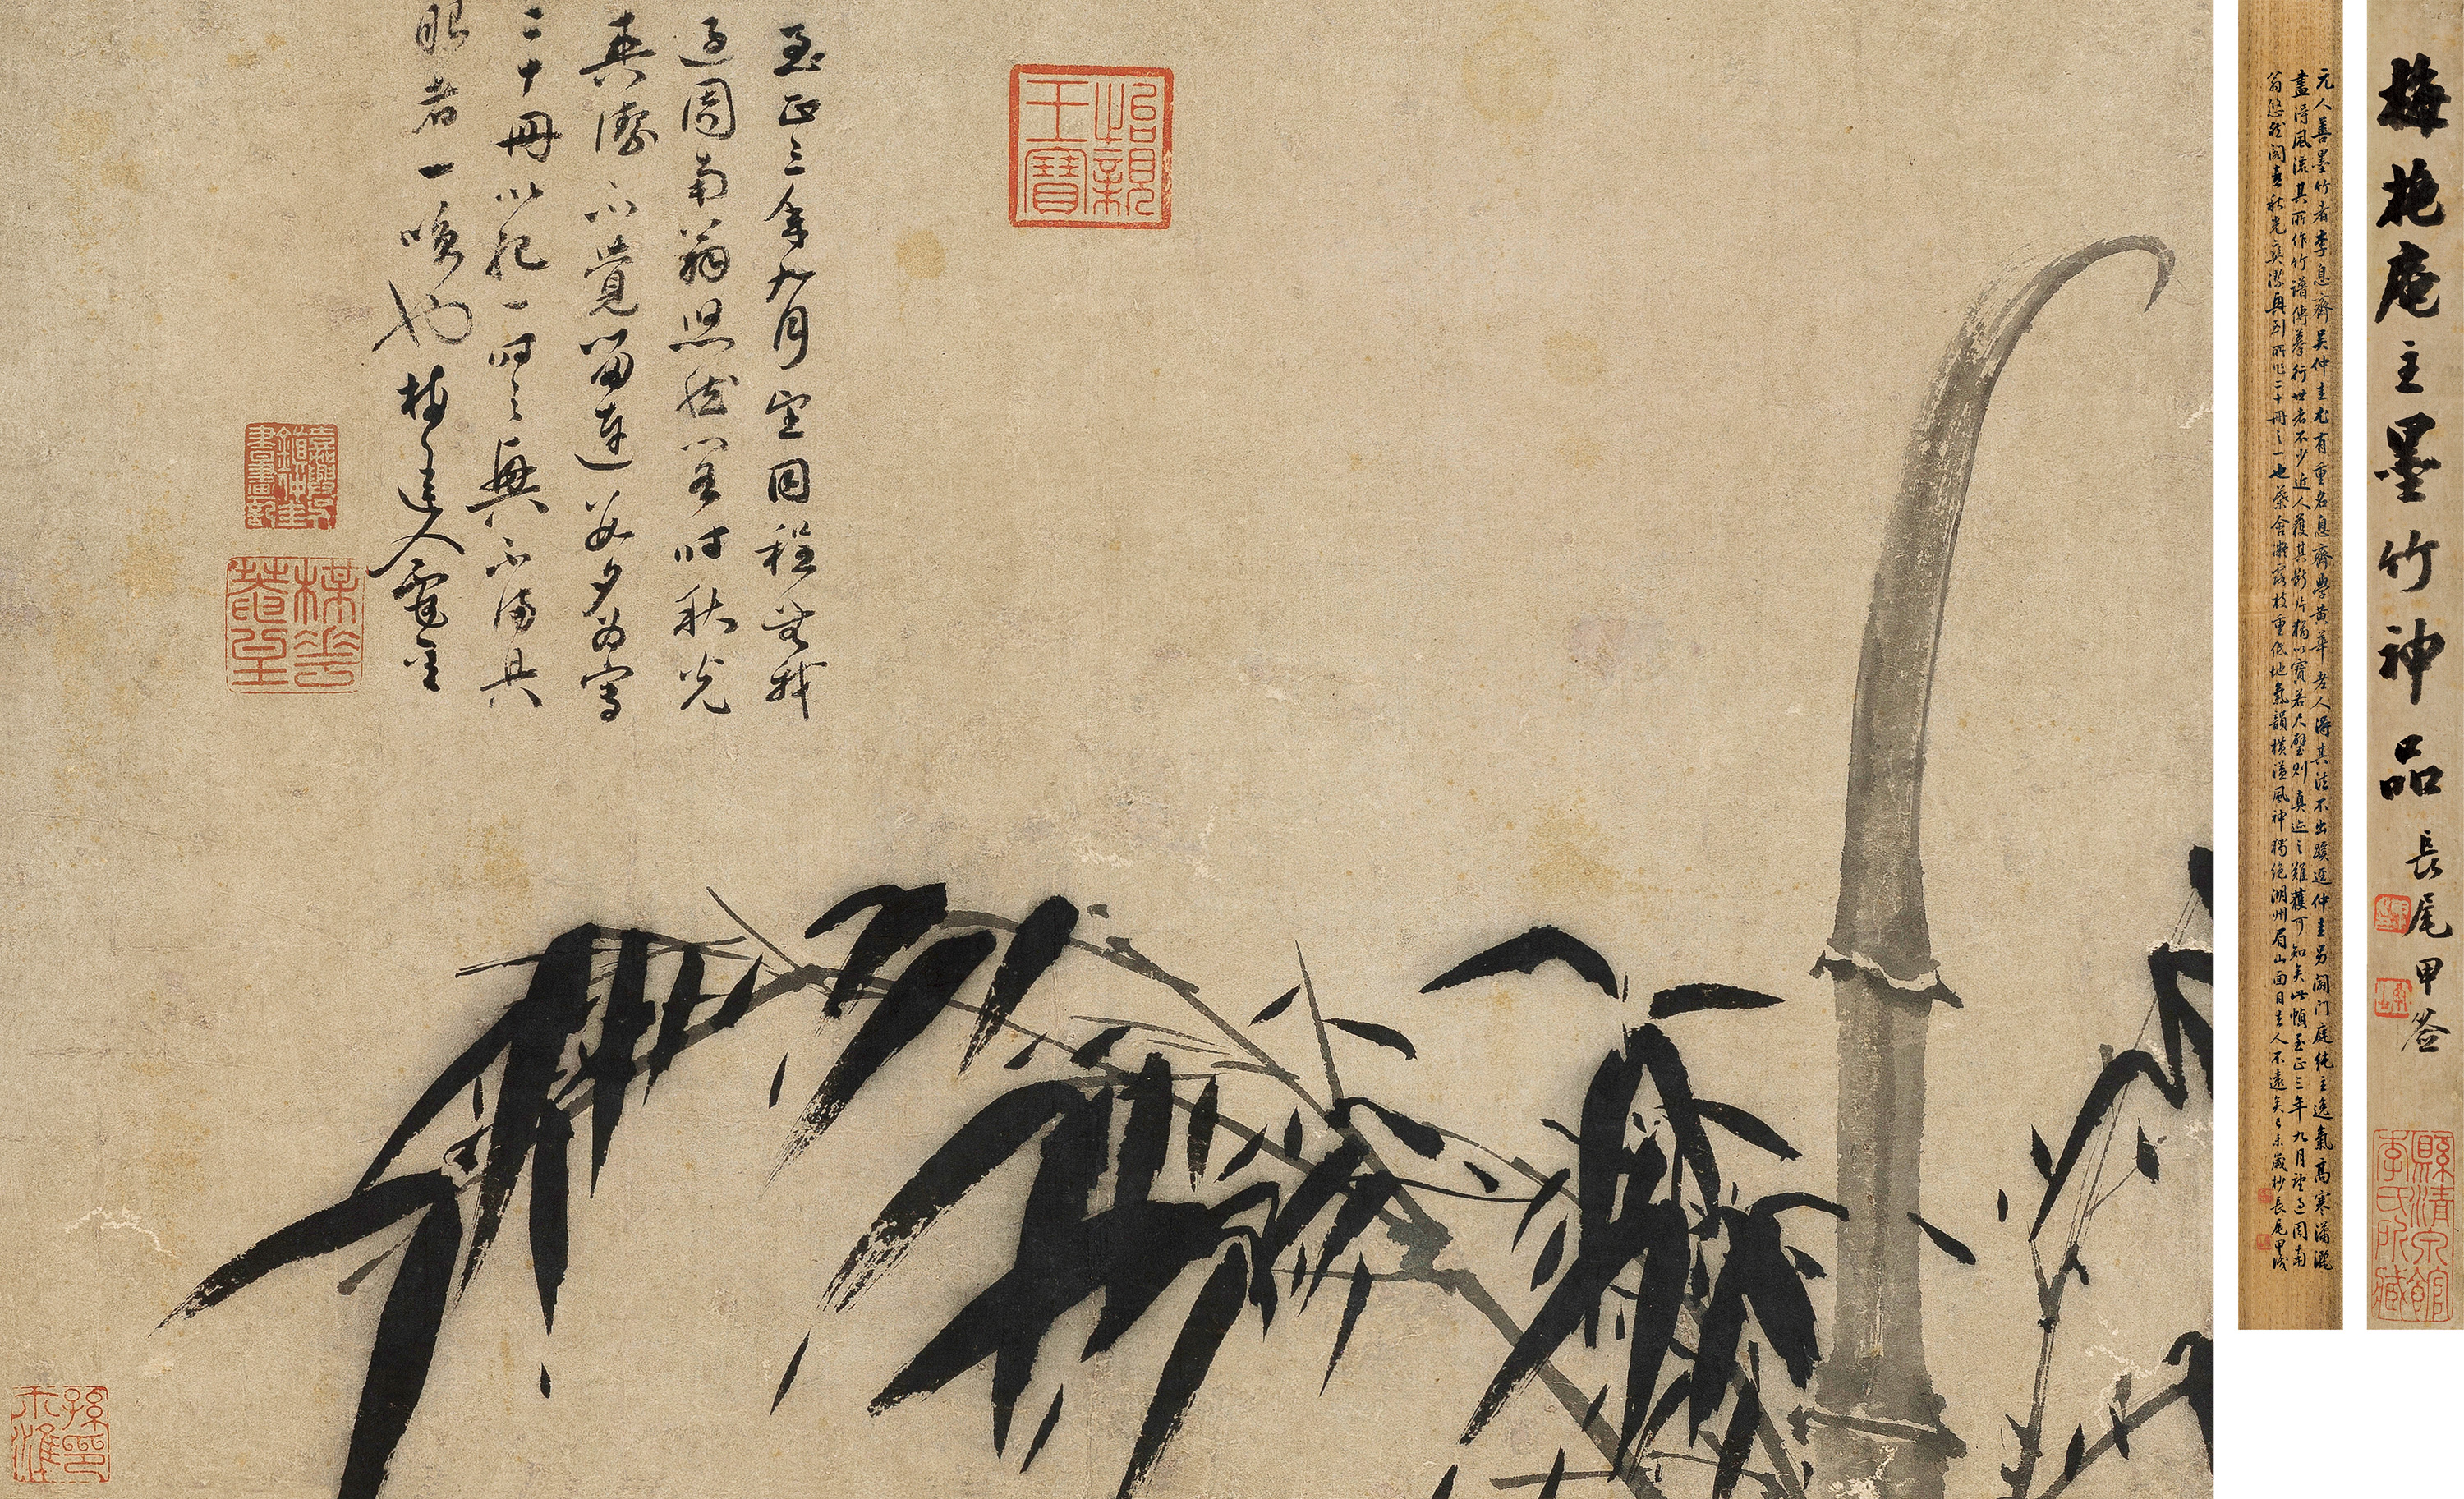 至正三年九月望同程無我
過周南翁悠然閣時秋光
爽潔不覺留連數夕為寫
二十冊以記一時之興不滿具
眼者一咲也梅道人
怡親王寶
嘉興吳鎮仲圭書畫記
梅花菴
孫印尒準
元人善墨竹者李息齋吳仲圭尤有重名息齋學黃華老人得其法不出蹊逕仲圭另闢門庭純主逸氣高寒瀟灑
盡得風流其所作竹譜傳摹行世者不少近人獲其影片猶以寶若尺璧則真迹之難獲可知矣此幀至正三年九月望過周南
翁悠然閣喜秋光爽潔再到所作二十冊之一也葉含凝露枝重低地氣韻橫溢風神獨絕湖州眉山面目去人不遠矣乙未歲杪長尾甲識
梅花庵主墨竹神品 長尾甲簽
李氏所藏